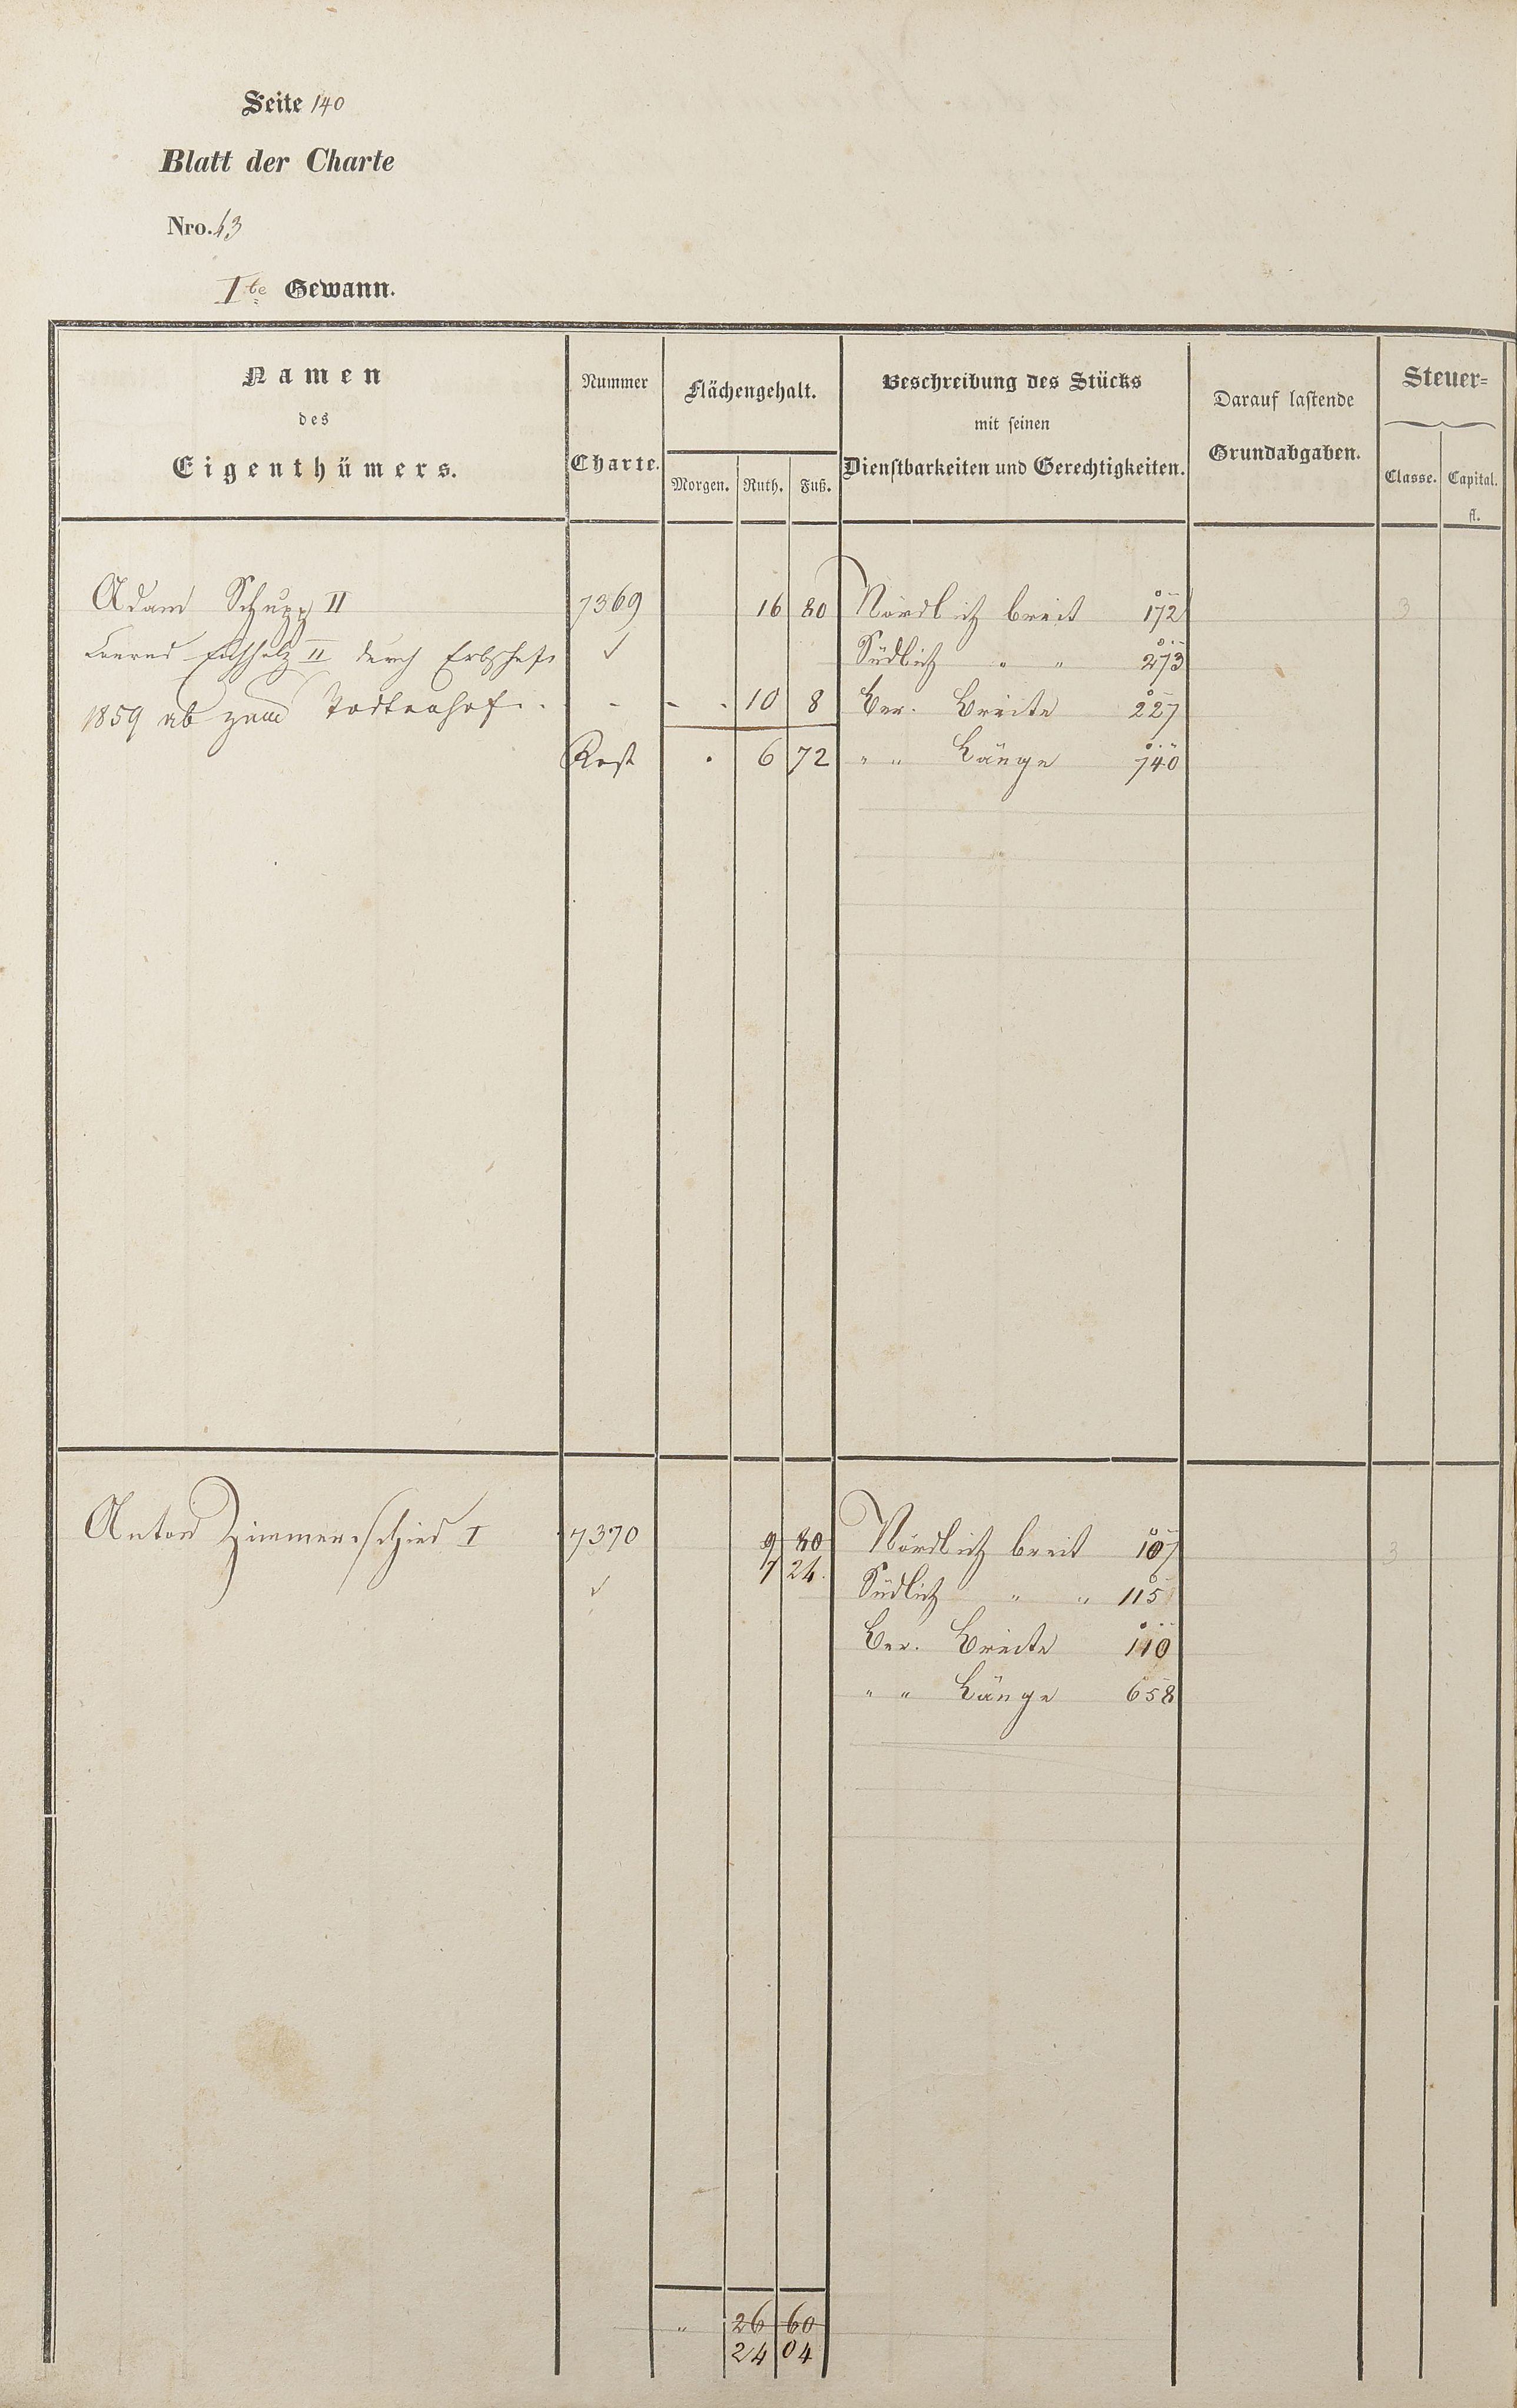 Seite 140
Blatt der Charte
Nro. 43
Ite Gewann.
Namen
des
Eigenthümers.
Nummer
Charte.
Flächengehalt.
Morgen. Ruth. Fuß.
Beschreibung des Stücks
mit seinen
Dienstbarkeiten und Gerechtigkeiten.
Darauf lastende
Grundabgaben.
Steuer=
Classe. Capital.
fl.
Adam Schupp II 7369 16 80 Nördlich breit 172 3
Conrad II durch Erbschaft ✓ Südlich " " 273
1859 ab zum Todtenhof - - - 10 8 Ber. Breite 227
Rest . 6 72 " " Länge 740
Anton Zimmerschied I 7370 9 80 Nördlich breit 107 3
✓ 7 24. Südlich " " 115
Ber. Breite 110
" " Länge 658
" 26 60
24 04